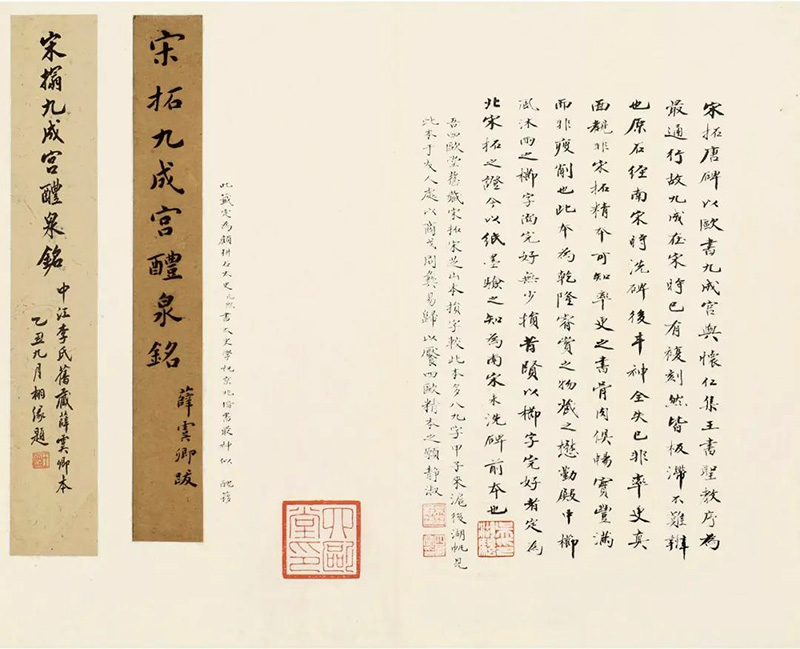 宋拓唐碑以歐書九成宮與懷仁集王書聖教序為
最通行故九成在宋時已有複刻然皆板滯不難辨
也原石經南宋時洗碑後丰神全失已非率更真
面貌非宋拓精本可知率更之書骨肉俱暢實豐滿
而非瘦削也此本為乾隆審賞之物藏之懋勤殿中櫛
風沐雨之櫛字尚完好無少損昔賢以櫛字完好者定為
北宋拓之證今以紙墨驗之知為南宋未洗碑前本也
吾四歐堂舊藏宋拓宋芝山本損字較此本多八九字甲子來滬後湖帆見
此本于友人處以商戈周彝易歸以饜四歐精本之願靜淑
四歐堂印
此籤定為顧耕石太史元熙書太史學祝京兆楷書最神似 醜簃
宋拓九成宮醴泉銘
薛雲卿跋
宋搨九成宮醴泉銘
中江李氏舊藏薛雲卿本
乙丑九月栩緣題